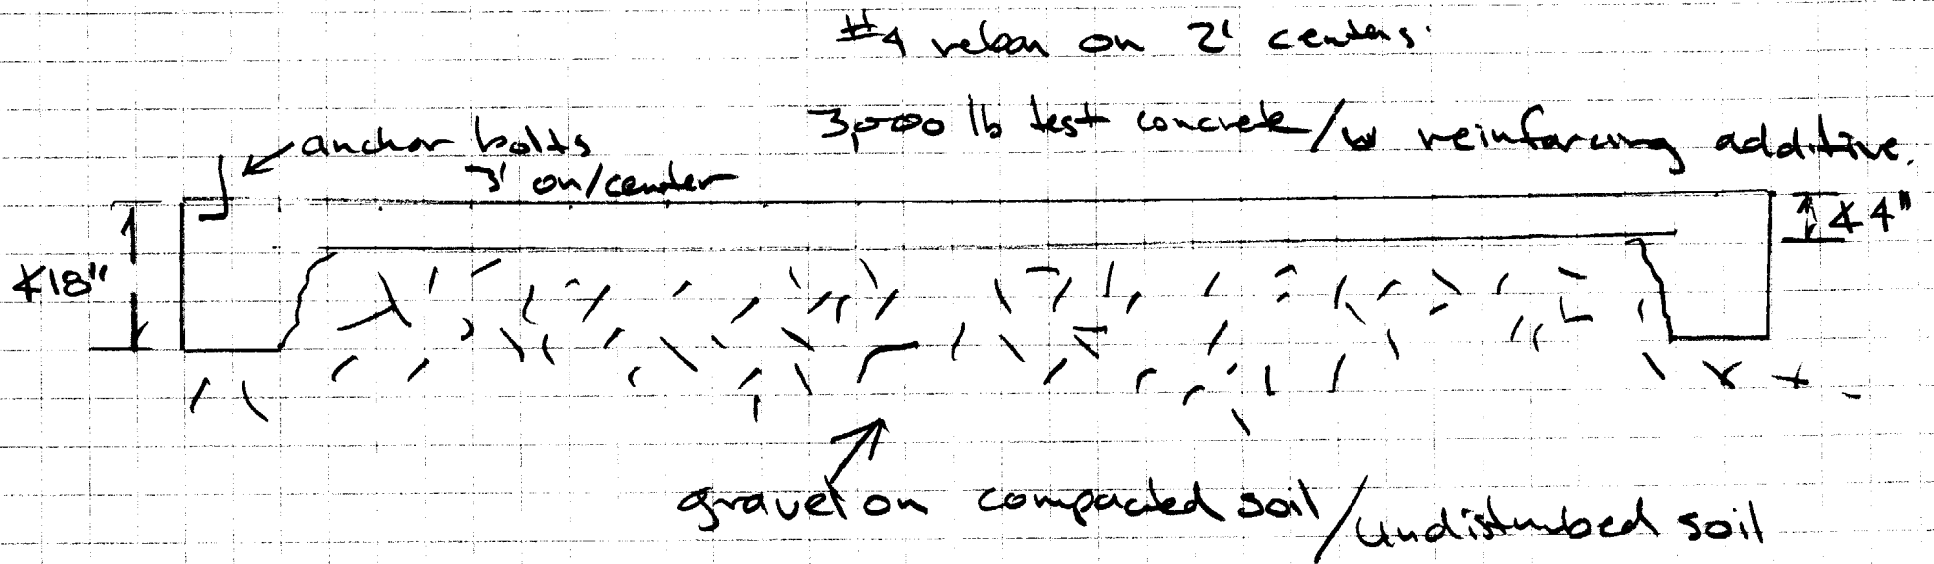 #4 rebar on 2' centers.
3,000 lb test concrete/w reinforcing additive.
anchor bolts
3' on/center
4"
18"
gravel on compacted soil/undisturbed soil